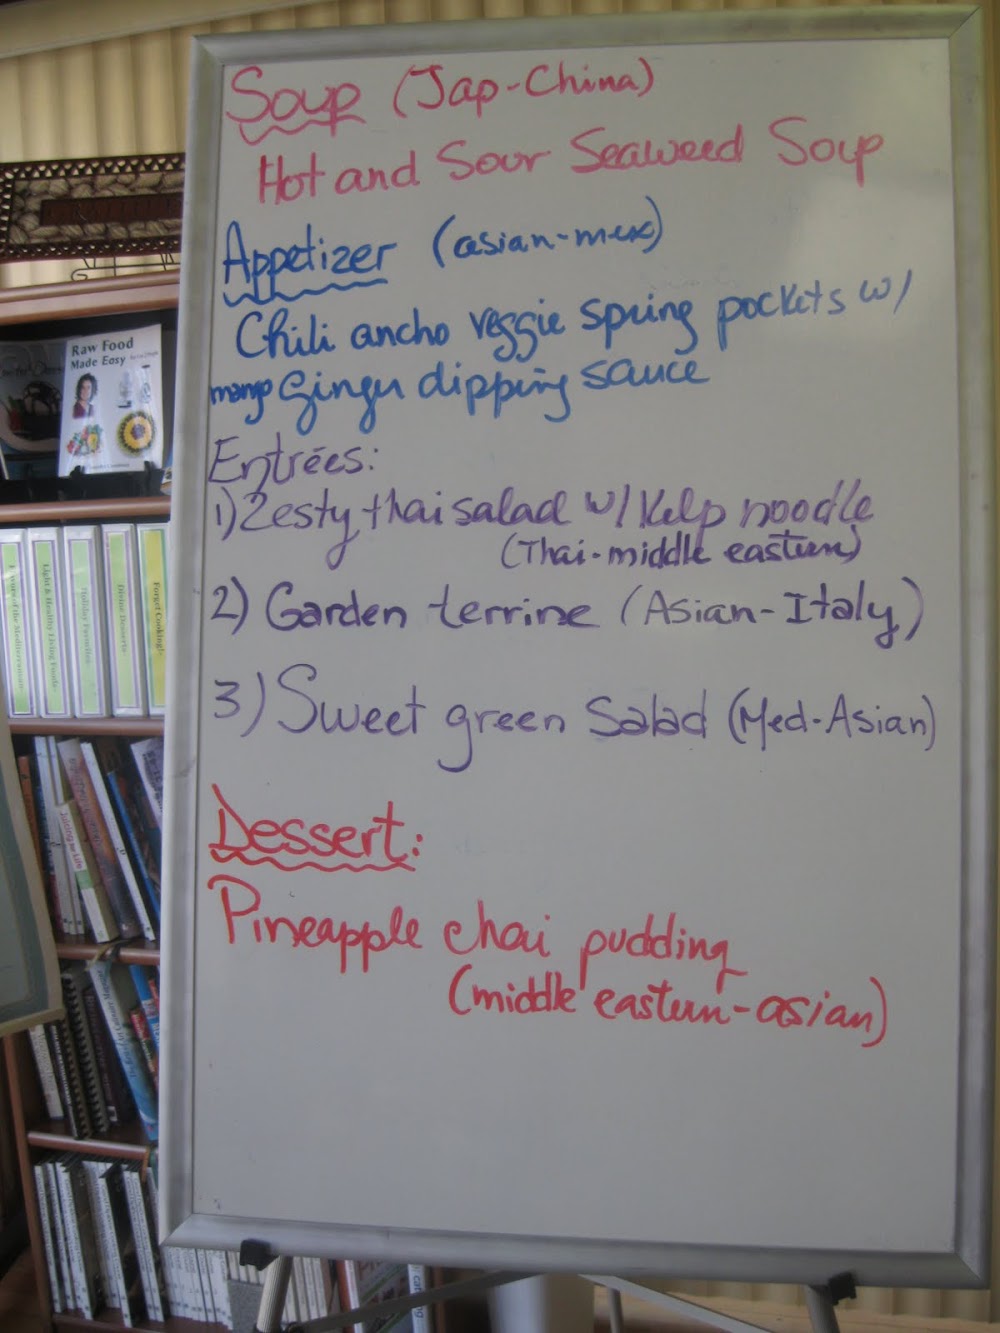 Soup (Jap-China)
Hot and Sour Seaweed Soup
Appetizer (asian-mex)
Chili ancho veggie spring pockets w/
mango Ginger dipping sauce
Entrées:
1) Zesty thai salad w/ Kelp noodle
(Thai-middle eastern)
2) Garden terrine (Asian-Italy)
3) Sweet green Salad (Med-Asian)
Dessert:
Pineapple chai pudding
(middle eastern-asian)
Raw Food
Made Easy
Flavors of the Mediterranean
Light & Healthy Living Foods
Holiday Favorites
Divine Desserts
Forget Cooking!